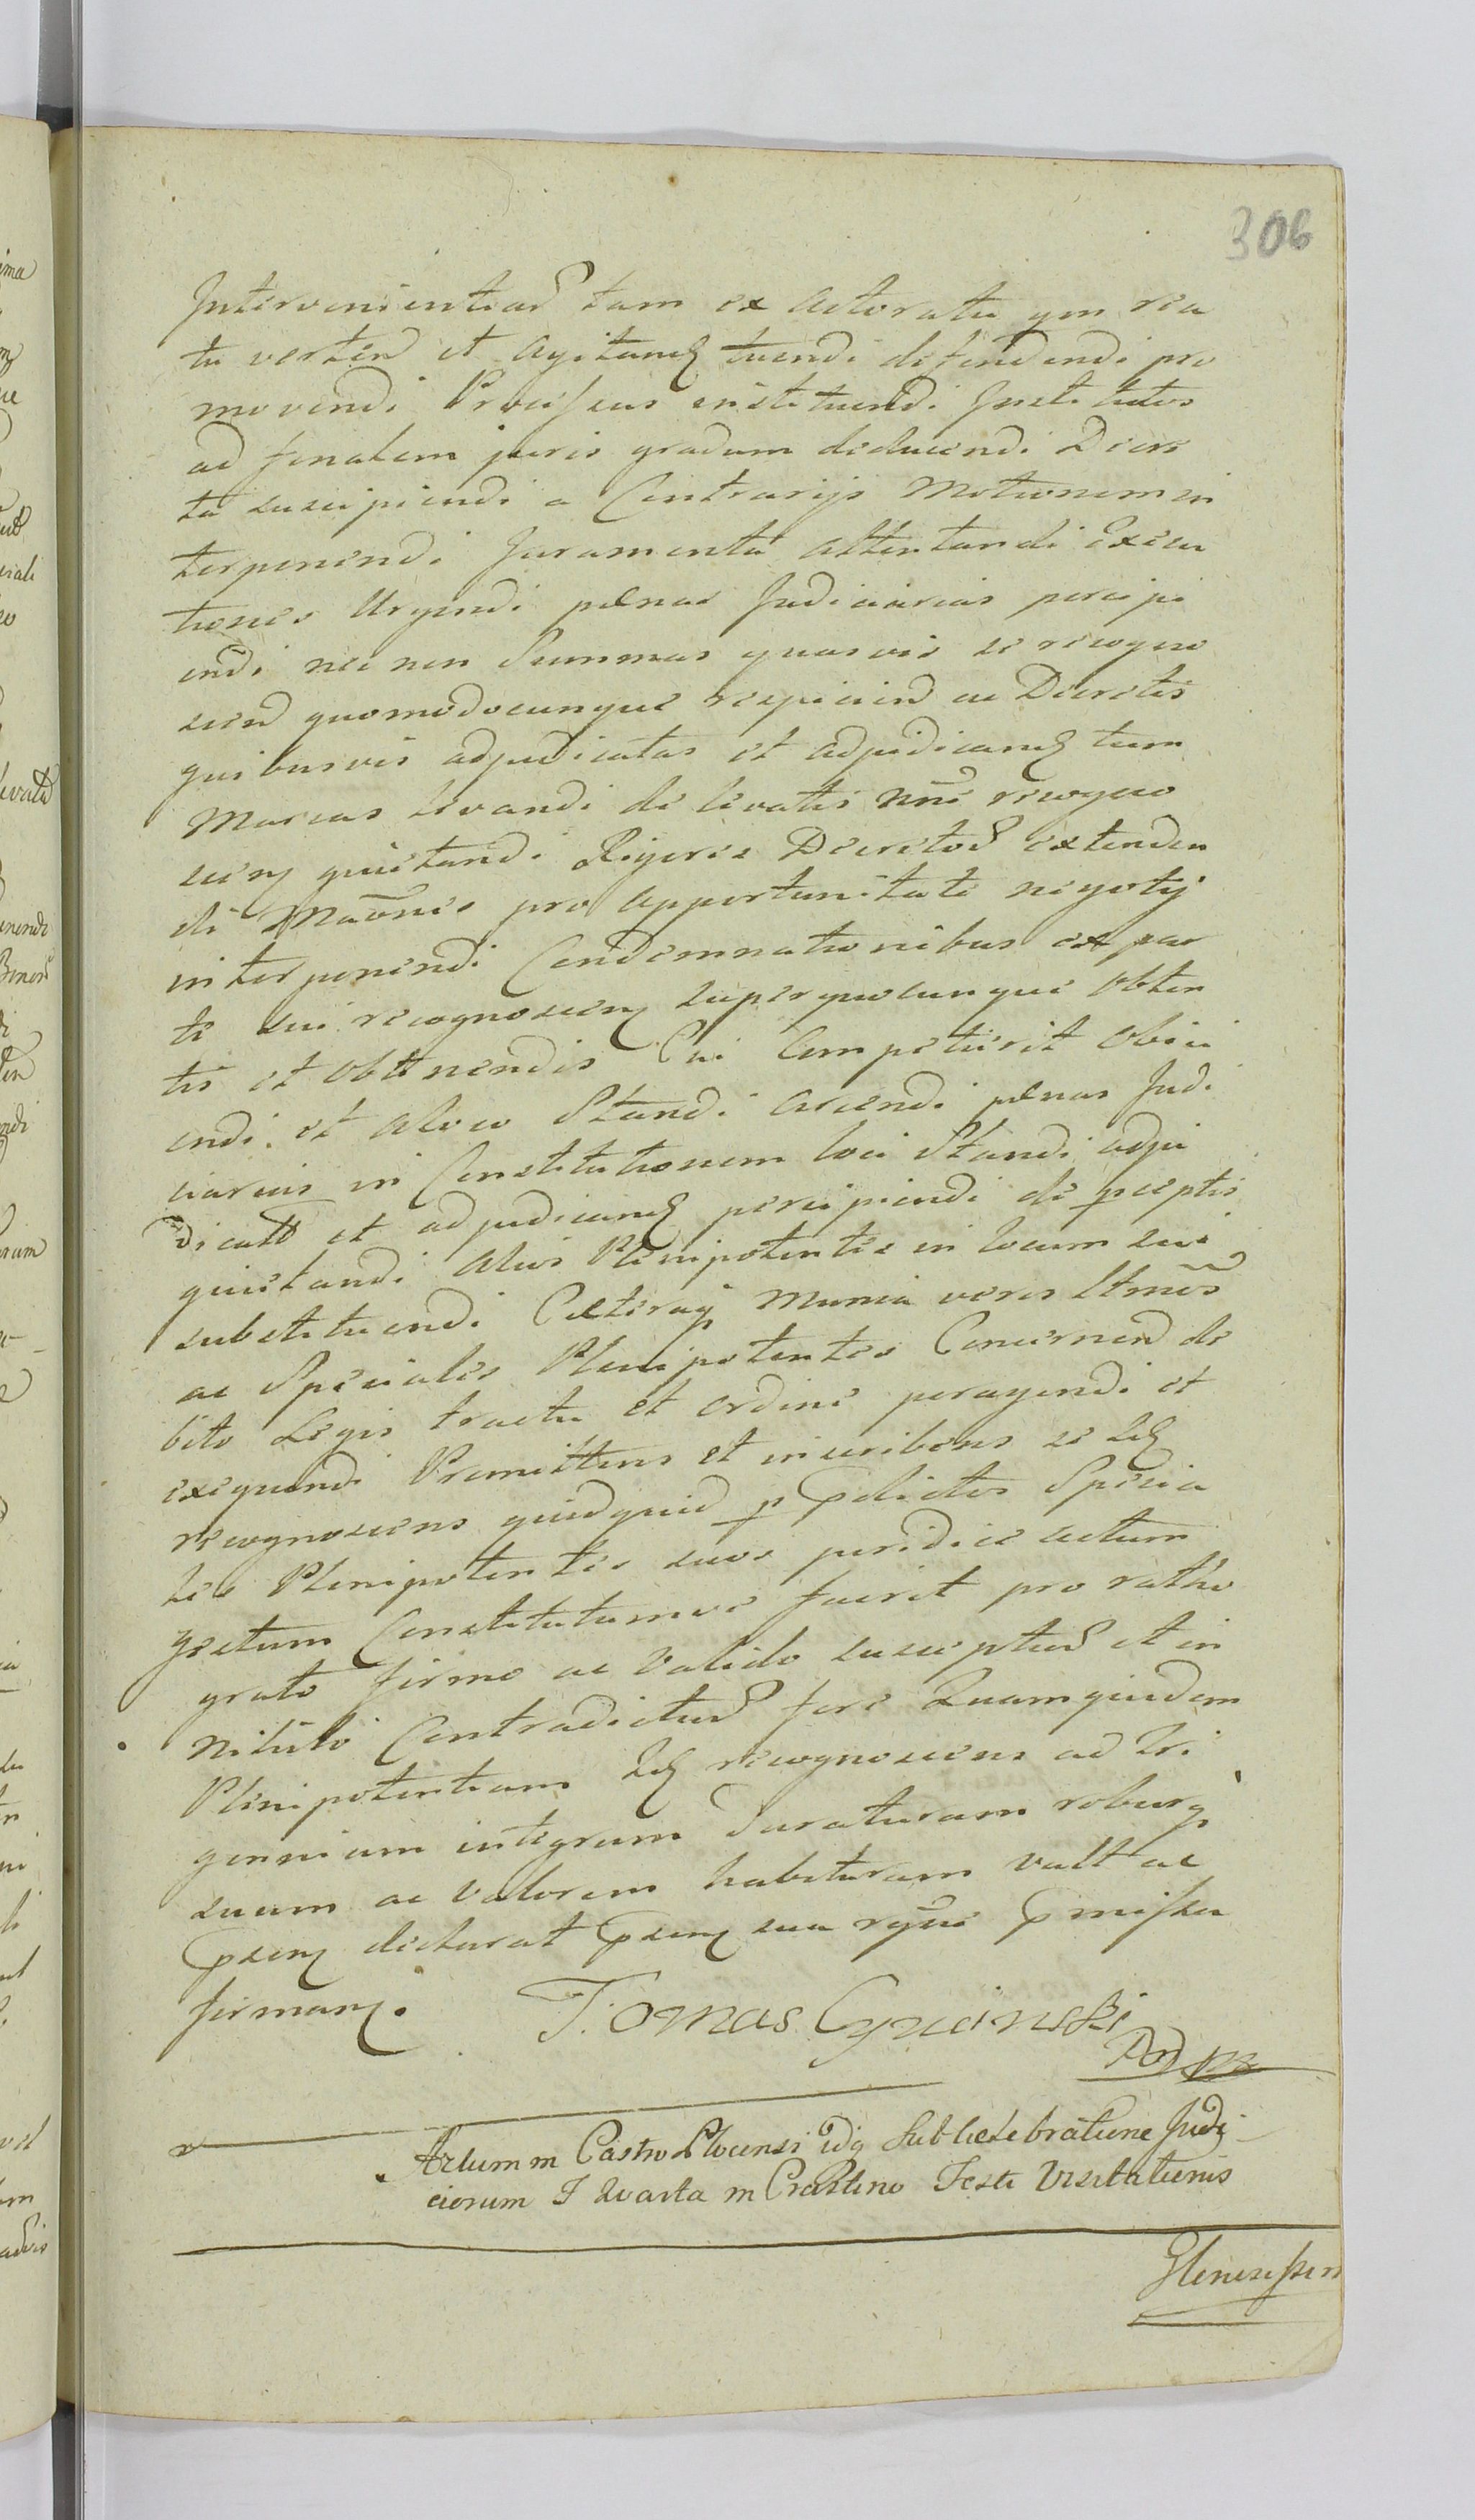 306
Intervenientiad tam ex actoratu qm rea
tu verten et agitand tuendi defendendi pro
movendi Processus instituendi Institutos
ad finalem juris gradum deducendi Decre
ta suscipiendi a Contrarijs Motionem in
terponendi Juramenta attentandi Execu
tiones Urgendi pænas Judiciarias percipi
endi nec non Summas quasvis se recogno
scen quomodocunque respicien ac Decretis
quibusvis adjudicatas et adjudicand tum
Marcas levandi de levatis nne recogno
scen quietandi Rigores Decretod extenden
di Maõnes pro opportunitate negotij
interponendi Condemnationibus ex par
te sui recognoscen superquocunque obten
tis et obtinendis Cui Competierit obici
endi et aloco Standi arcendi pænas Judi
ciarias in Constitutionem loci Standi adju
dicatt et adjudicand percipiendi de pceptis
quietandi Alios Plenipotentes in locum sui
substituendi Cæteraq munia veros Ltmos
ac Speciales Plenipotentes Concernen de
bito Legis tractu et ordine peragendi et
exequendi Promittens et inscribens se idem
recognoscens quidquid p pdictos Specia
les Plenipotentes suos juridice actum
gestum Constitutumve fuerit pro ratho
grato firmo ac Valido suscepturd et in
nihilo Contradicturd fore Quamquidem
Plenipotentiam idem recognoscens ad Tri
gennium integrum Duraturam roburq
suum ac Valorem habituram vult ac
psen declarat psen sua rgne pmissa
firman. Tomas Cyncinski
Actum in Castro Plocensi idq Sub Celebratione Judi
ciorum F Quarta in Crastino Festi Visitationis